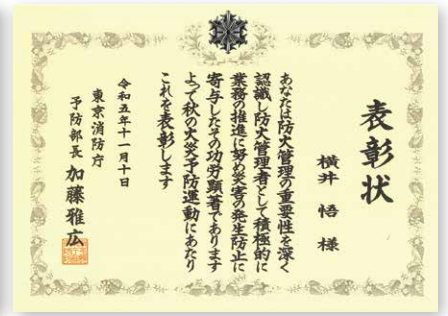 表彰状
横井 悟 様
あなたは防火管理の重要性を深く
認識し防火管理者として積極的に
業務の推進に努め災害の発生防止に
寄与したその功労顕著であります
よって秋の火災予防運動にあたり
これを表彰します
令和五年十一月十日
東京消防庁
予防部長 加藤雅広